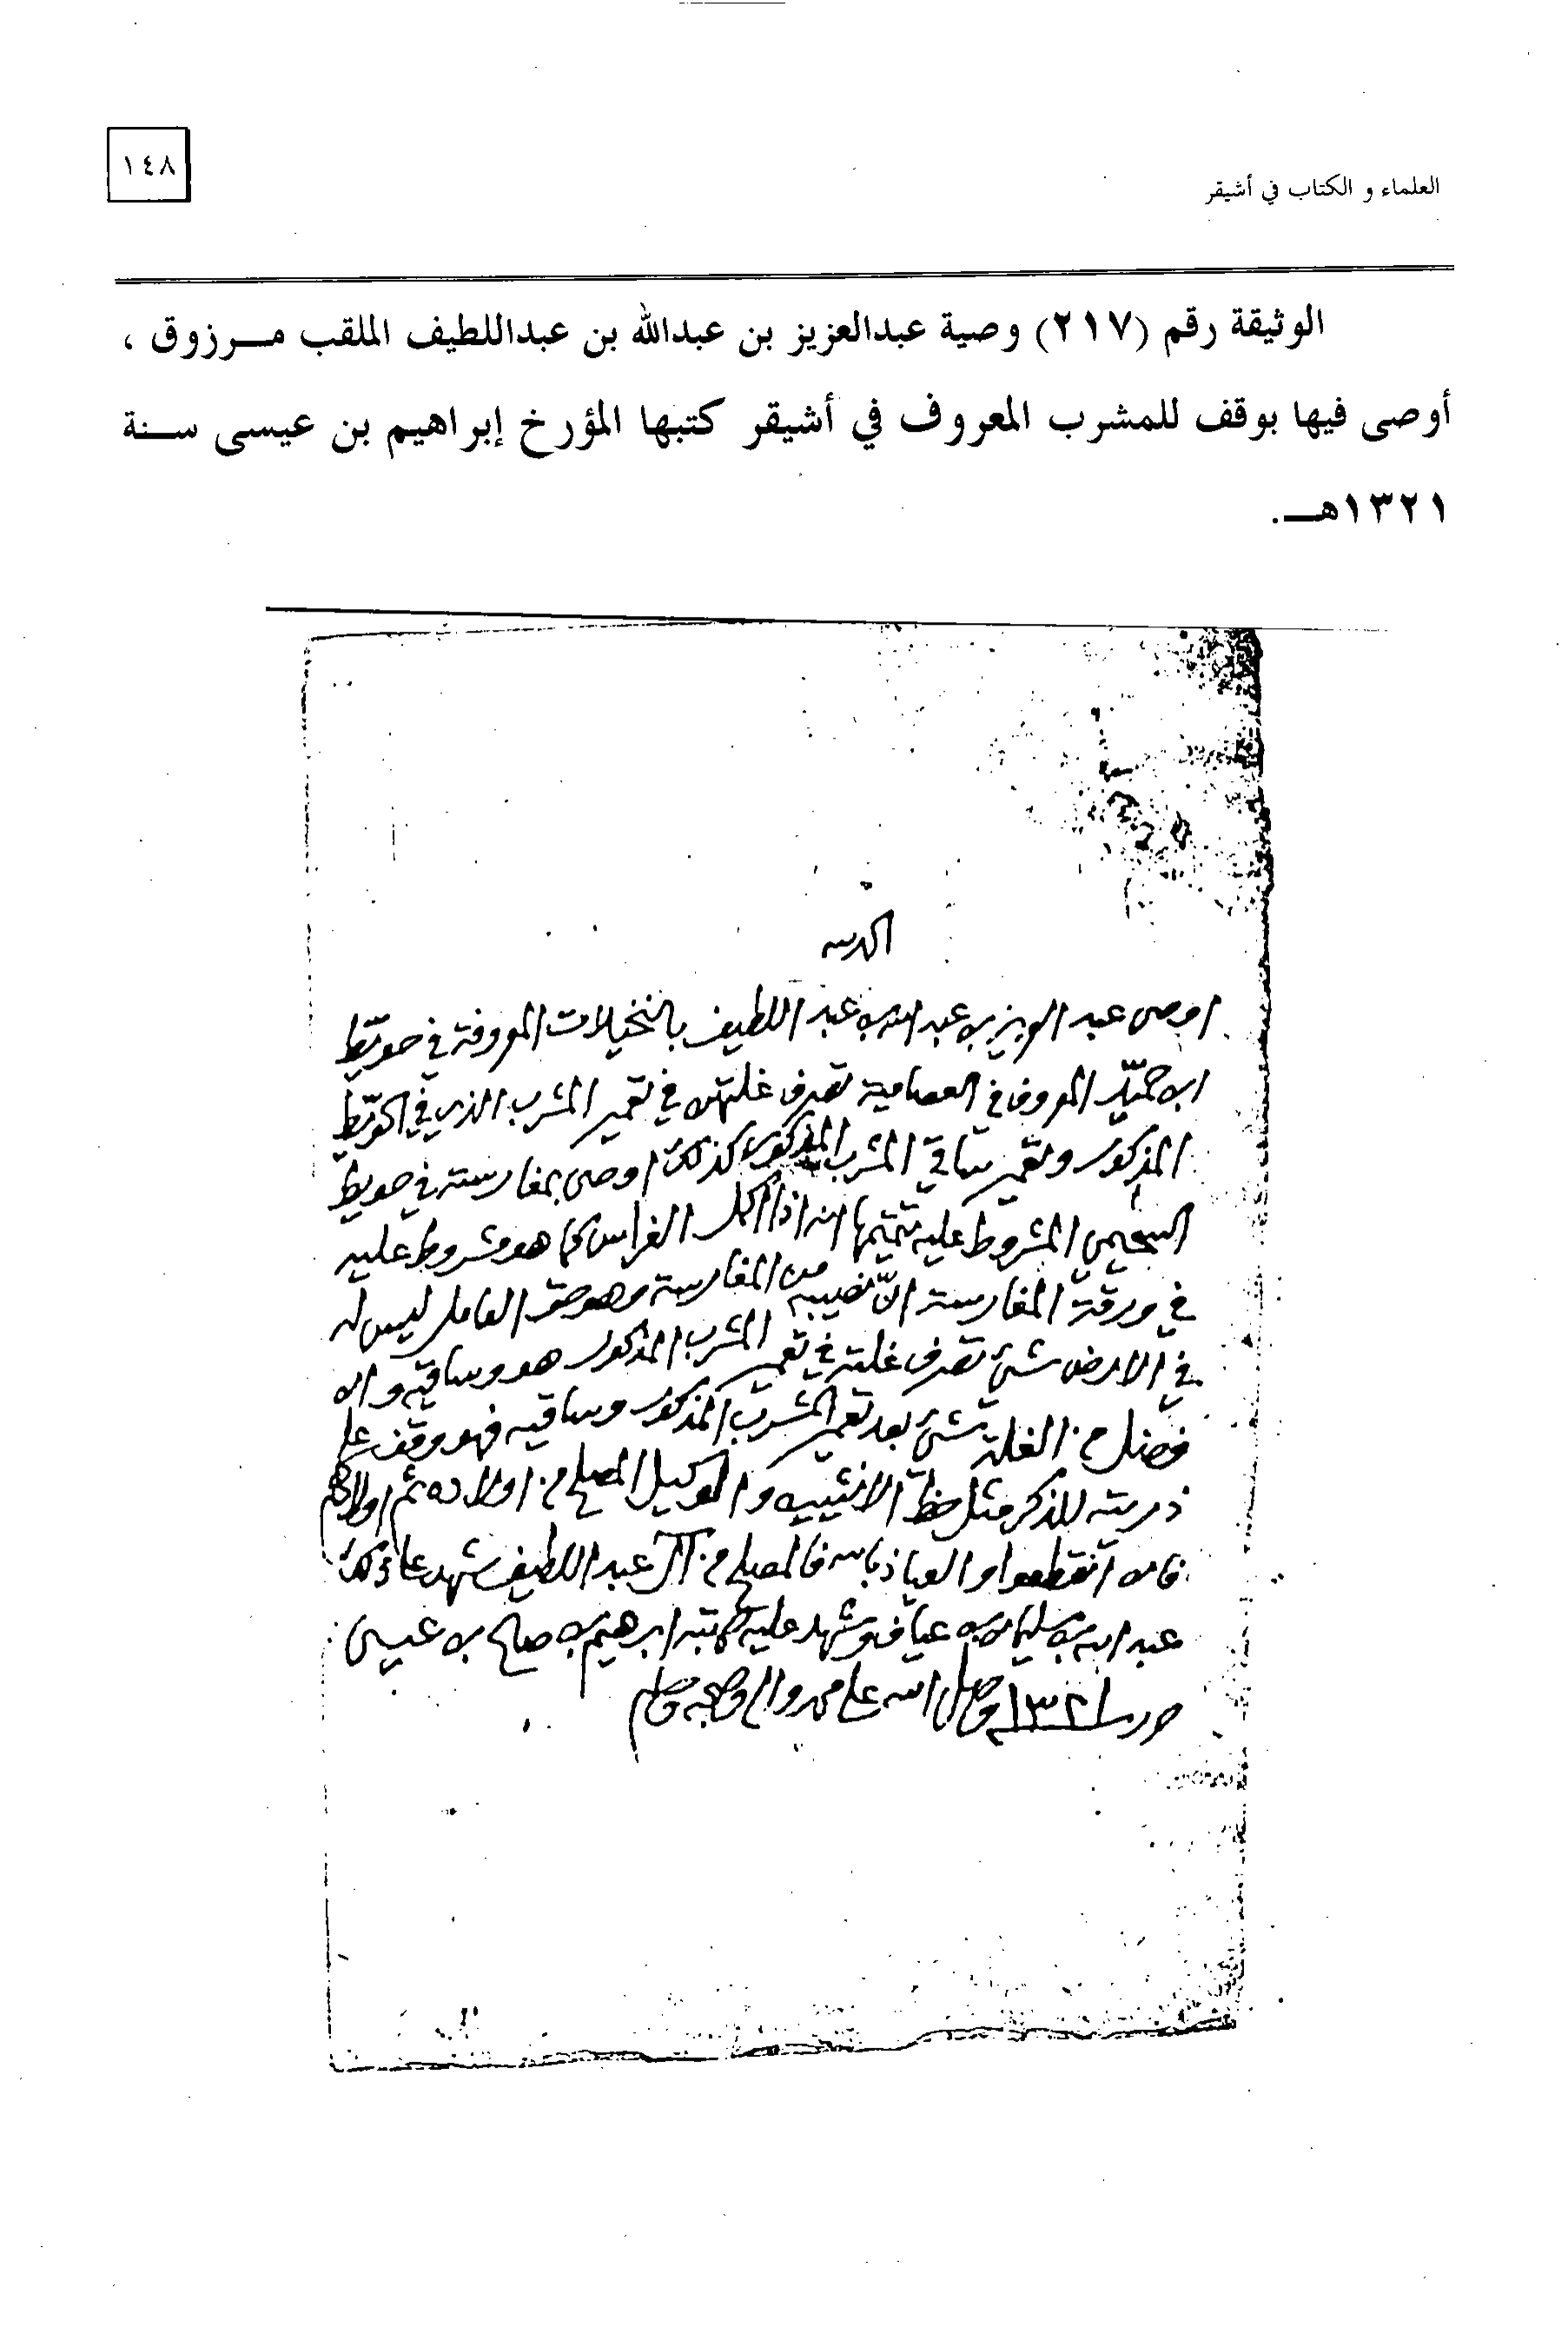 العلماء و الكتاب في أشيقر
١٤٨
الوثيقة رقم (٢١٧) وصية عبدالعزيز بن عبدالله بن عبداللطيف الملقب مـــرزوق ،
أوصى فيها بوقف للمشرب المعروف في أشيقر كتبها المؤرخ إبراهيم بن عيسى ســنة
١٣٢١هـــ.
الحمد لله
اوصى عبد العزيز بن عبد الله بن عبد اللطيف بالنخيلات المعروفة في حويّط
ابن حميّد المعروف في العصامية تصرف غلتهن في تعمير المشرب الذي في الحويّط
المذكور وتعمير ساقي المشرب المذكور كذلك اوصى بمغارسته في حويط
السحيمي المشروط عليه تتميمها انه اذا اكمل الغراس كما هو مشروط عليه
في ورقة المغارسة انّ نصيبه من المغارسة وهو حق العامل ليس له
في الارض شيئ تصرف غلته في تعمير المشرب المذكور هو وساقيه وان
فضل من الغلة شيئ بعد تعمير المشرب المذكور وساقيه فهو وقف على
ذريته للذكر مثل حظّ الانثيين والوكيل المصلح من اولاده ثم اولادهم
فان انقطعوا والعياذ بالله فالمصلح من آل عبد اللطيف شهد على ذلك
عبد الله بن سليمان بن عياف وشهد عليه كاتبه ابرهيم بن صالح بن عيسى
١٣٢١ وصلى الله على محمد واله وصحبه وسلم